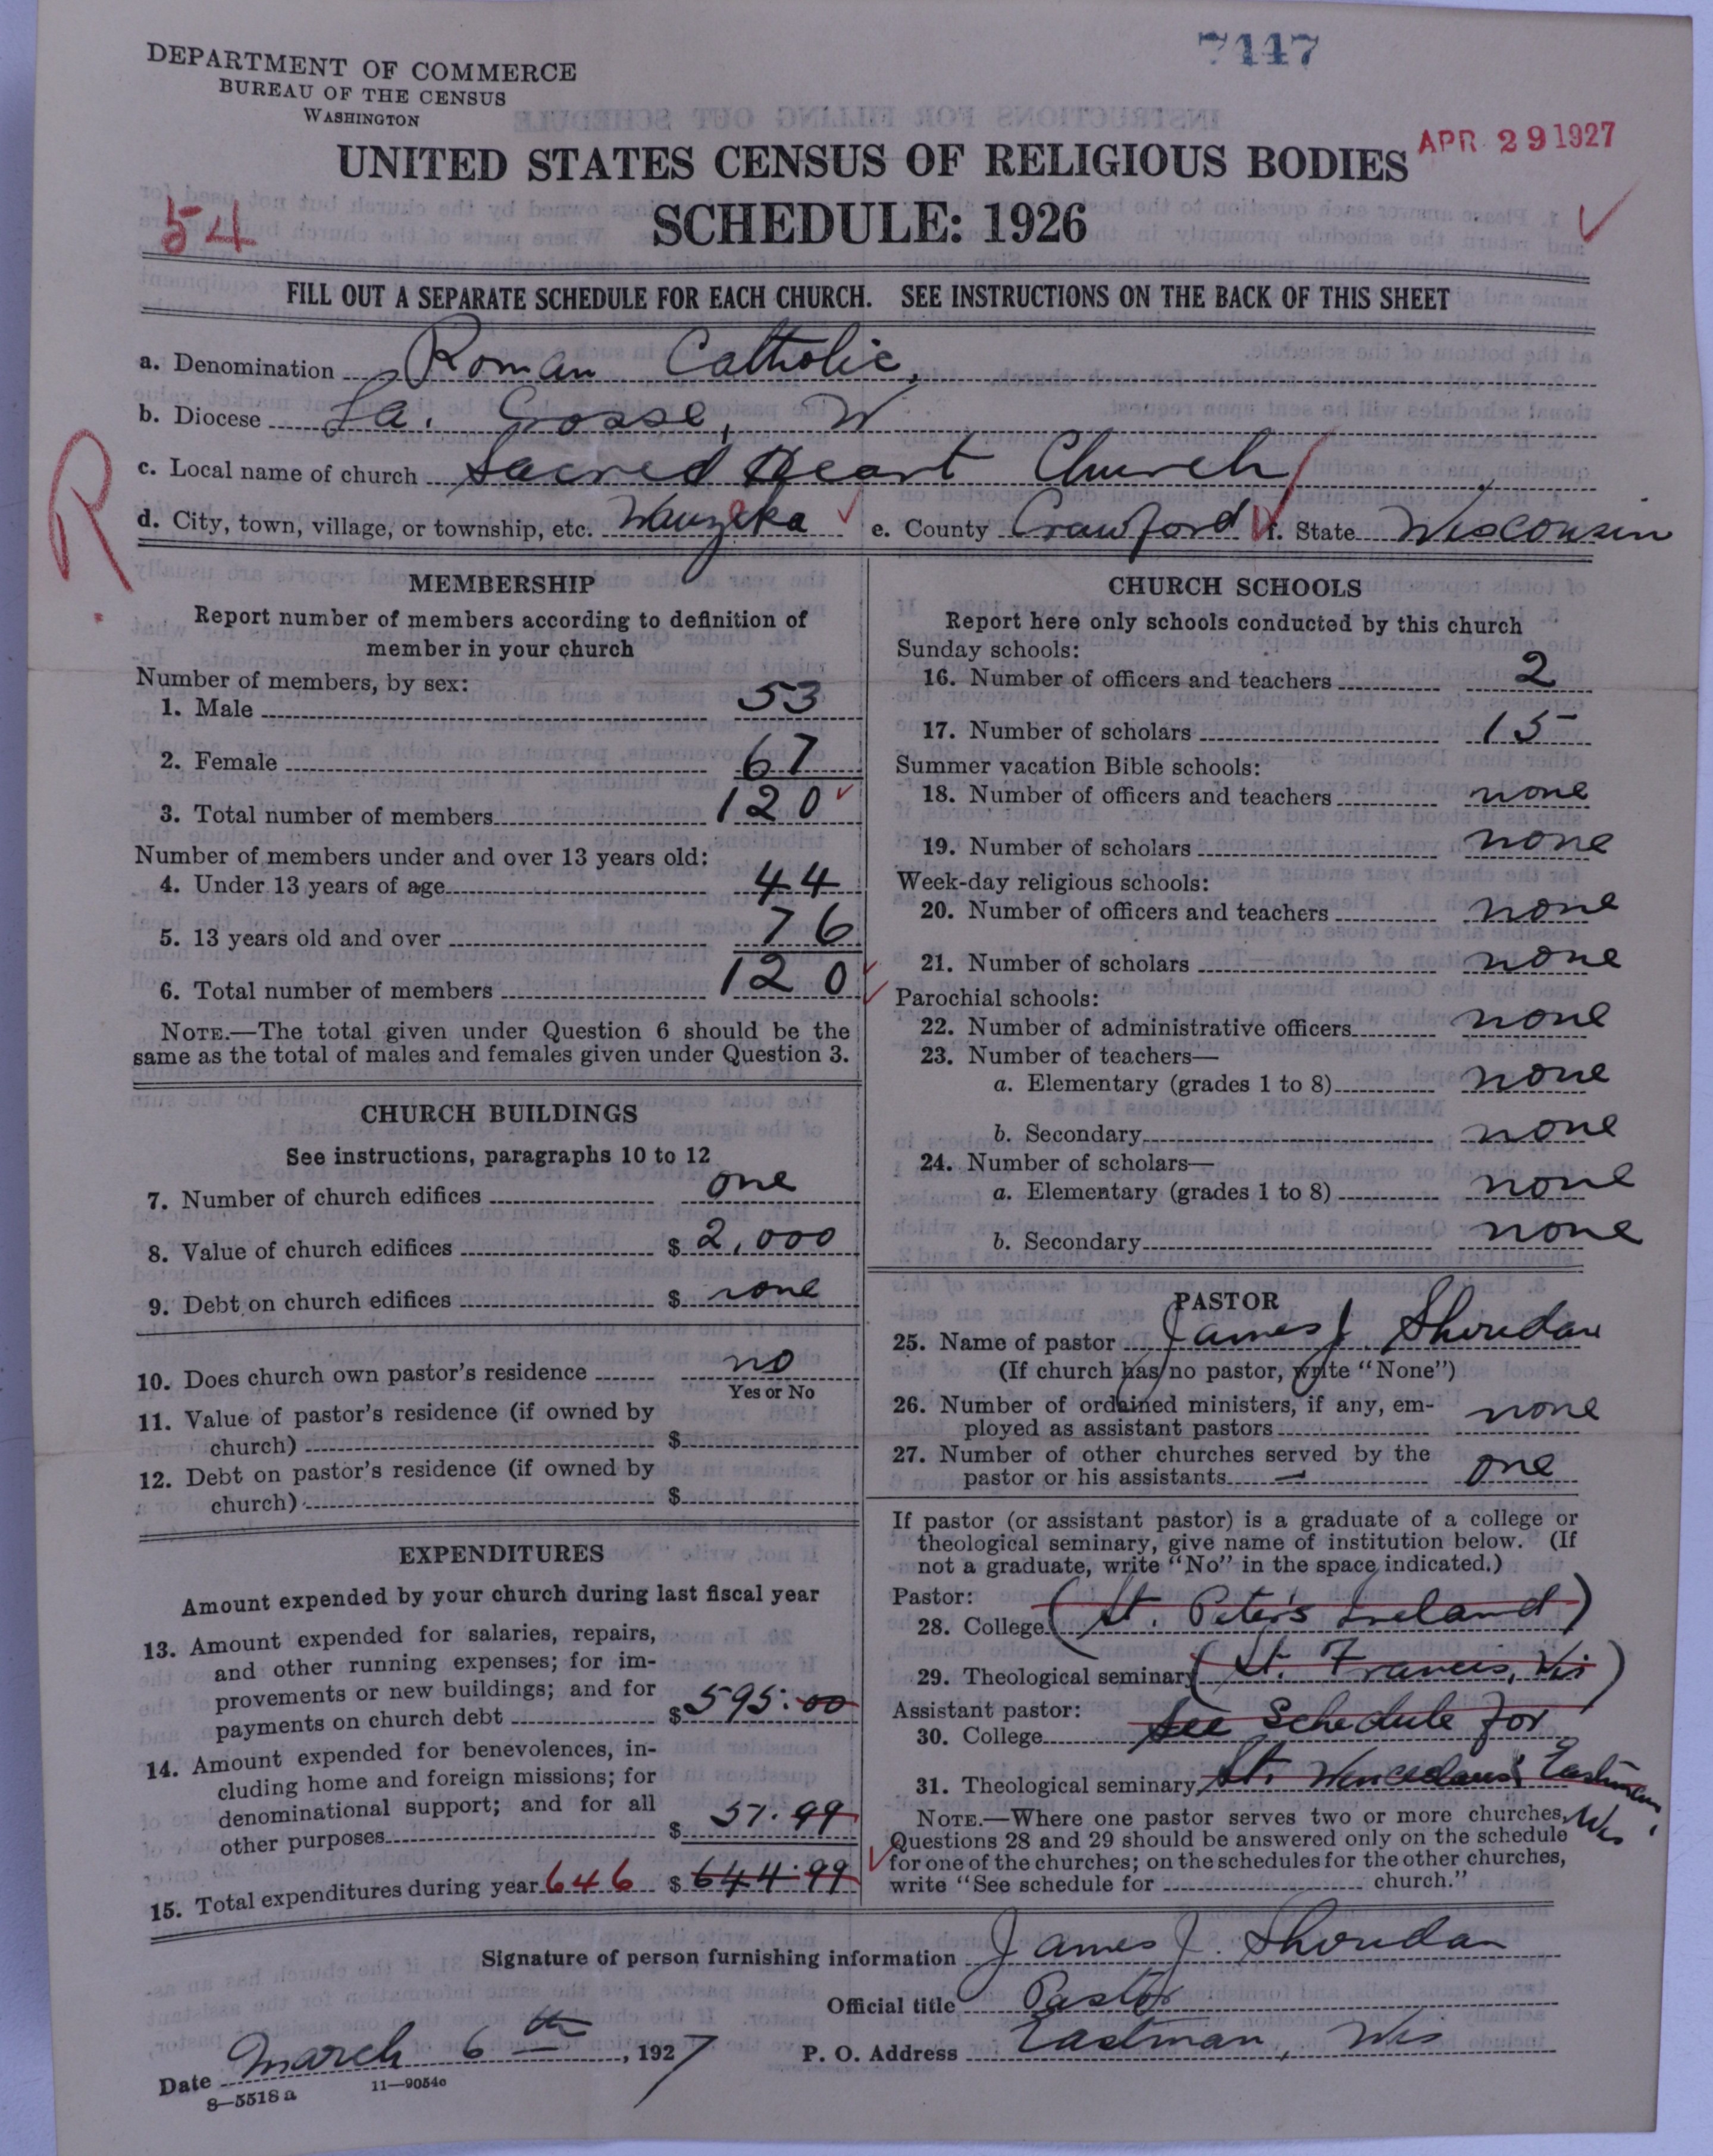 7447
DEPARTMENT OF COMMERCE
BUREAU OF THE CENSUS
WASHINGTON
APR 29 1927
UNITED STATES CENSUS OF RELIGIOUS BODIES
54
SCHEDULE: 1926
FILL OUT A SEPARATE SCHEDULE FOR EACH CHURCH. SEE INSTRUCTIONS ON THE BACK OF THIS SHEET
a. Denomination Roman Catholic,
b. Diocese La. Crosse, W
R
c. Local name of church Sacred Heart Church
d. City, town, village, or township, etc. Wauzeka e. County Crawford f. State Wisconsin
MEMBERSHIP
Report number of members according to definition of
member in your church
Number of members, by sex:
1. Male 53
2. Female 67
3. Total number of members 120
Number of members under and over 13 years old:
4. Under 13 years of age 44
5. 13 years old and over 76
6. Total number of members 120
NOTE.—The total given under Question 6 should be the
same as the total of males and females given under Question 3.
CHURCH BUILDINGS
See instructions, paragraphs 10 to 12
7. Number of church edifices one
8. Value of church edifices $ 2,000
9. Debt on church edifices $ none
10. Does church own pastor's residence no
Yes or No
11. Value of pastor's residence (if owned by
church) $
12. Debt on pastor's residence (if owned by
church) $
EXPENDITURES
Amount expended by your church during last fiscal year
13. Amount expended for salaries, repairs,
and other running expenses; for im-
provements or new buildings; and for
payments on church debt $ 595.00
14. Amount expended for benevolences, in-
cluding home and foreign missions; for
denominational support; and for all
other purposes $ 51.99
15. Total expenditures during year 646 $ 644.99
CHURCH SCHOOLS
Report here only schools conducted by this church
Sunday schools:
16. Number of officers and teachers 2
17. Number of scholars 15
Summer vacation Bible schools:
18. Number of officers and teachers none
19. Number of scholars none
Week-day religious schools:
20. Number of officers and teachers none
21. Number of scholars none
Parochial schools:
22. Number of administrative officers none
23. Number of teachers—
a. Elementary (grades 1 to 8) none
b. Secondary none
24. Number of scholars—
a. Elementary (grades 1 to 8) none
b. Secondary none
PASTOR
25. Name of pastor James J. Sheridan
(If church has no pastor, write "None")
26. Number of ordained ministers, if any, em-
ployed as assistant pastors none
27. Number of other churches served by the
pastor or his assistants one
If pastor (or assistant pastor) is a graduate of a college or
theological seminary, give name of institution below. (If
not a graduate, write "No" in the space indicated.)
Pastor:
28. College (St. Peter's Ireland)
29. Theological seminary (St. Francis, Wis)
Assistant pastor:
30. College See Schedule for
31. Theological seminary St. Wenceslaus Eastman,
Wis
NOTE.—Where one pastor serves two or more churches,
Questions 28 and 29 should be answered only on the schedule
for one of the churches; on the schedules for the other churches,
write "See schedule for church."
Signature of person furnishing information James J. Sheridan
Official title Pastor
Date March 6th, 1927 P. O. Address Eastman, Wis
8—5518a 11—9054c